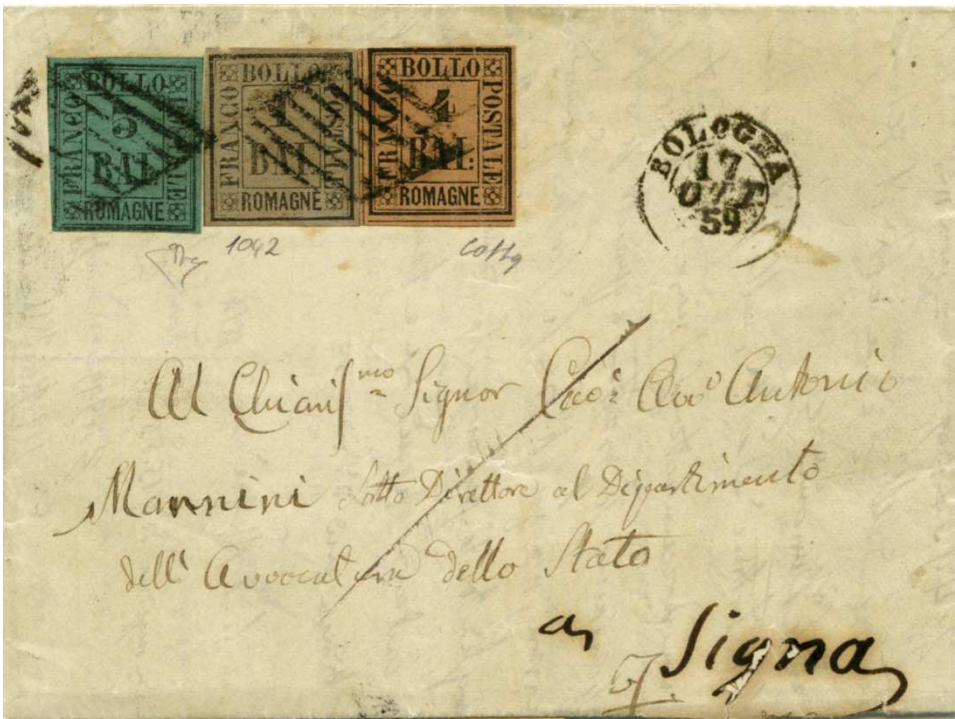 BOLLO
FRANCO
POSTALE
BAI
ROMAGNE
BOLLO
FRANCO
POSTALE
BAI
ROMAGNE
BOLLO
FRANCO
POSTALE
4
BAI
ROMAGNE
BOLOGNA
17
OTT
59
1042
Al Chiariſ.mo Signor Avv° Antonio
Mannini Sotto Direttore al Dipartimento
dell' Avvocatura dello Stato
a Signa